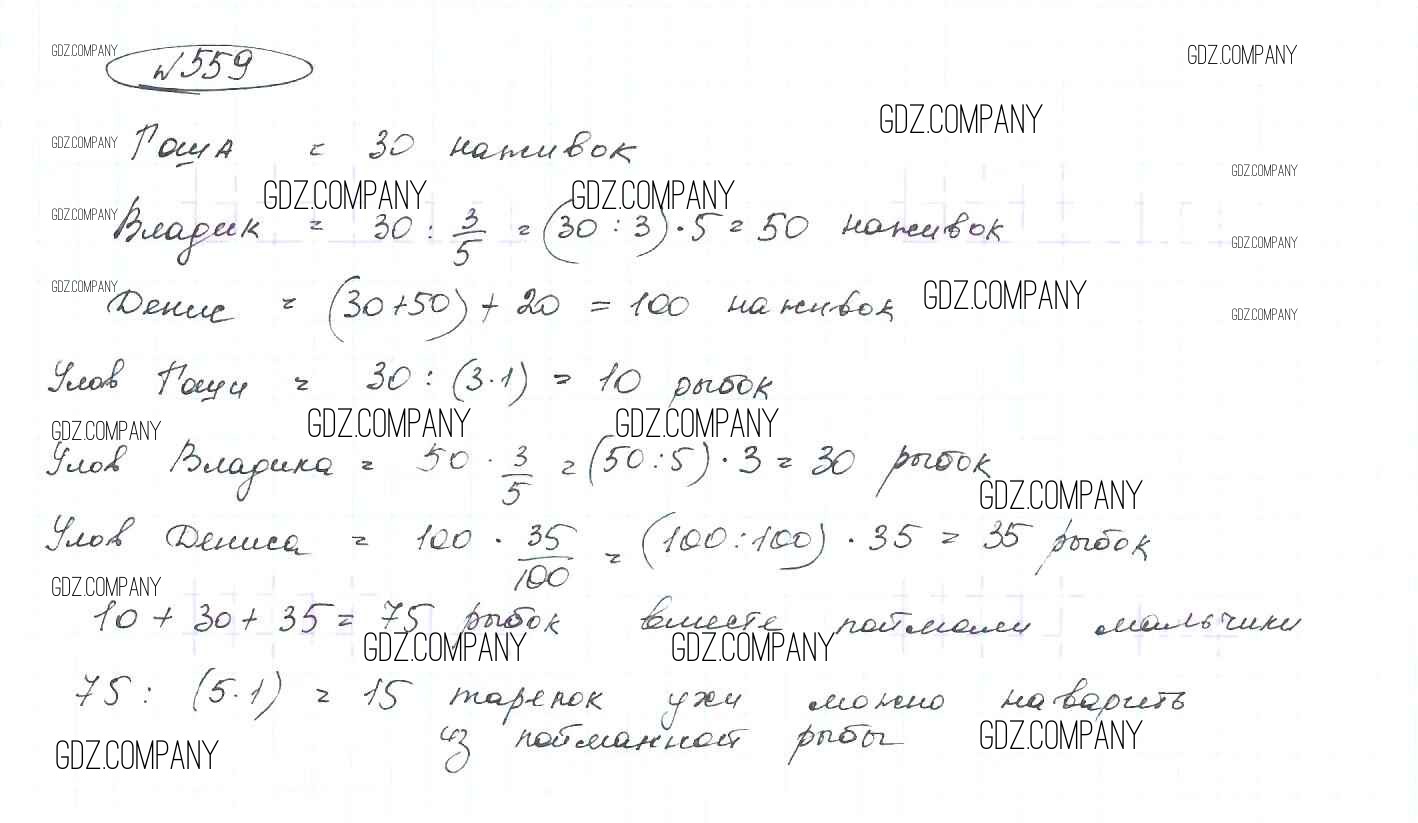 GDZ.COMPANY
№559
GDZ.COMPANY
GDZ.COMPANY
GDZ.COMPANY
Гоша = 30 наживок
GDZ.COMPANY
GDZ.COMPANY GDZ.COMPANY
GDZ.COMPANY
Владик = 30 : 3/5 = (30 : 3) · 5 = 50 наживок
GDZ.COMPANY
GDZ.COMPANY
Денис = (30+50) + 20 = 100 наживок
GDZ.COMPANY
GDZ.COMPANY
Улов Гоши = 30 : (3·1) = 10 рыбок
GDZ.COMPANY GDZ.COMPANY GDZ.COMPANY
Улов Владика = 50 · 3/5 = (50 : 5) · 3 = 30 рыбок
GDZ.COMPANY
Улов Дениса = 100 · 35/100 = (100 : 100) · 35 = 35 рыбок
GDZ.COMPANY
10 + 30 + 35 = 75 рыбок вместе поймали мальчики
GDZ.COMPANY GDZ.COMPANY
75 : (5·1) = 15 тарелок ухи можно наварить
из пойманной рыбы
GDZ.COMPANY
GDZ.COMPANY